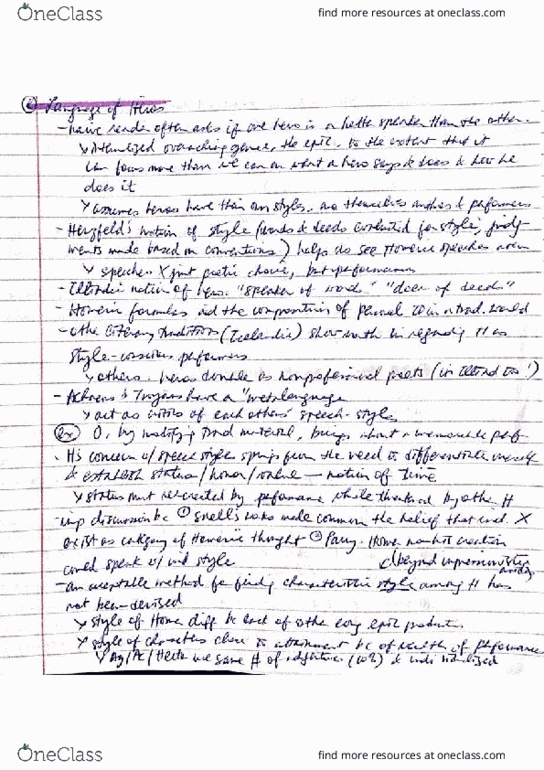 OneClass
find more resources at oneclass.com
Language of Heros
- naive reader often asks if one hero is a better speaker than the other.
overarching genre, the epic, to the extent that it
can focus more than we can on what a hero says & does & how he
does it
assumes heros have their own styles, are themselves authors & performers
- Herzfeld's notion of style (words & deeds evaluated for style, judg-
ments made based on conventions) helps us see Homeric speeches
speeches X just poetic choice, but performances
- notion of hero. "speaker of words" "doer of deeds"
- Homeric formulas aid the composition of in a trad. world
- other literary traditions (Icelandic) show worth in regarding H as
style-conscious performers
others. heros double as nonprofessional poets (in Iliad too!)
- Achaeans & Trojans have a "metalanguage"
act as critics of each others' speech-styles
ex O, by modifying trad material, brings about a memorable perf-
H's concern w/ speech styles springs from the need to differentiate oneself
& establish status / honor / value — notion of Time
status must be created by performance while threatened by other H
imp discussion bc ① Snell's works made common the belief that ind. X
exist as category of Homeric thought ② Parry. Homer
could speak w/ ind style
beyond
- an acceptable method for finding characteristic style among H has
not been devised
style of Homer diff bc lack of other long epic
style of characters close to attainment bc of wealth of performance
Ag/Ac/Hector use same # of adjectives
OneClass
find more resources at oneclass.com